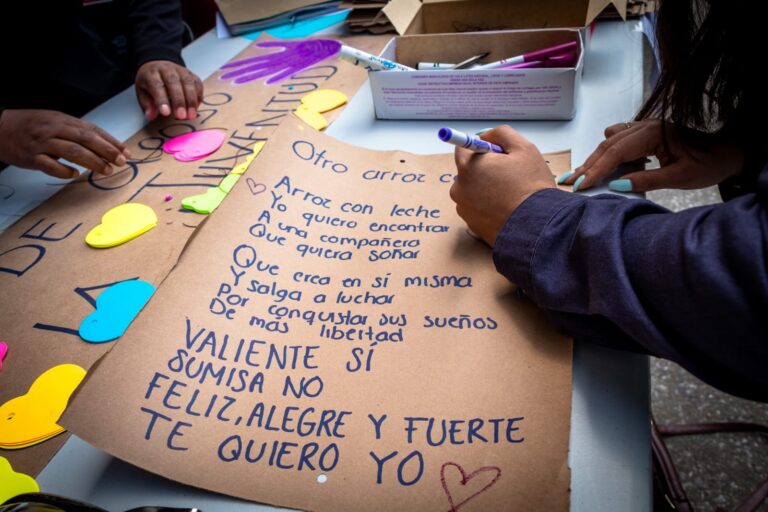 Otro arroz c
Arroz con leche
Yo quiero encontrar
A una compañera
Que quiera soñar
Que crea en sí misma
Y salga a luchar
Por conquistar sus sueños
De más libertad
VALIENTE SÍ
SUMISA NO
FELIZ, ALEGRE Y FUERTE
TE QUIERO YO
DE
LA
JUVENTUD